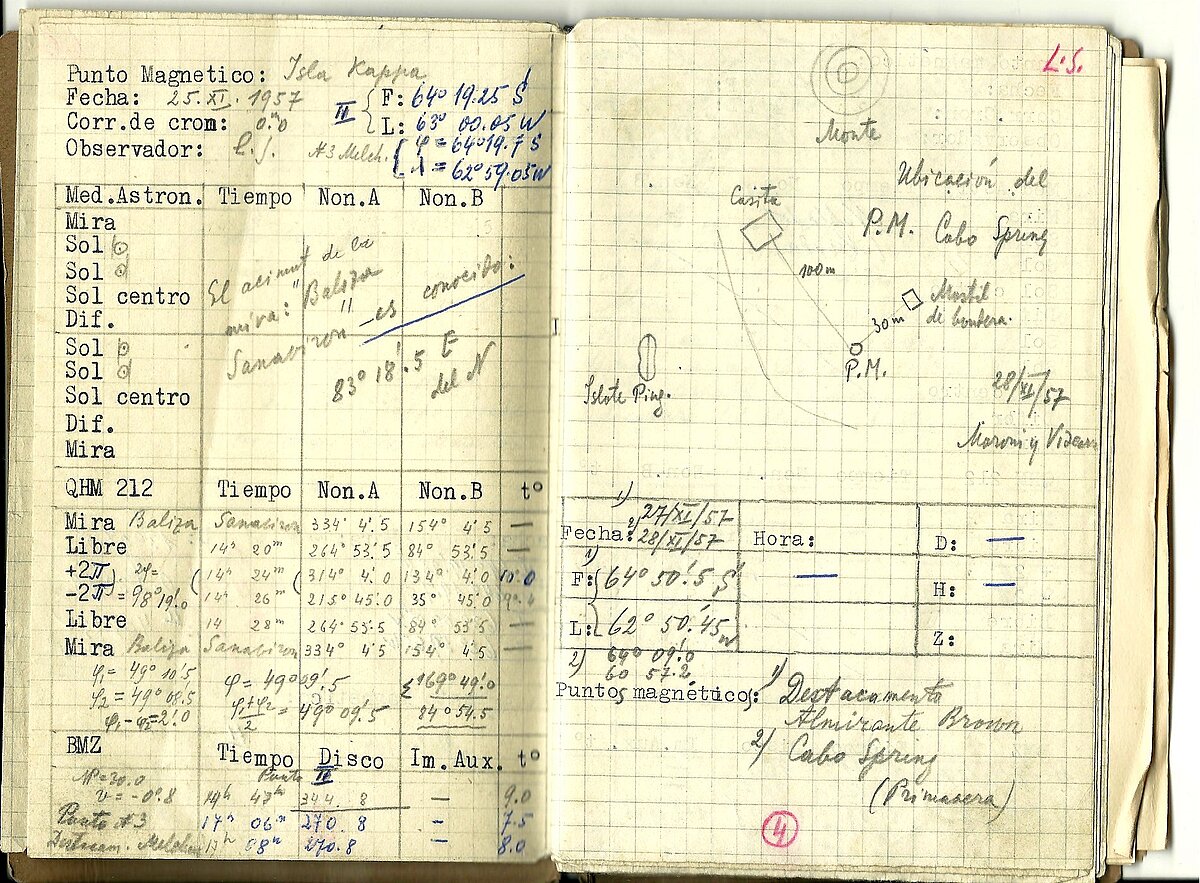 Punto Magnetico: Isla Kappa
Fecha: 25.XI.1957
Corr.de crom: 0.ᵐ0
Observador: L.S.
II { F: 64° 19.'25 S
L: 63° 00.'05 W
#3 Melch. { φ = 64°19.'7 S
λ = 62°59.'05 W
Med.Astron. Tiempo Non.A Non.B
Mira
Sol
Sol
Sol centro
Dif.
Sol
Sol
Sol centro
Dif.
Mira
El acimut de la
mira: "Baliza
Sanaviron" es conocido:
83° 18'.5 E
del N
QHM 212 Tiempo Non.A Non.B t°
Mira Baliza Sanaviron 334° 4'.5 154° 4'.5 —
Libre 14ʰ 20ᵐ 264° 53'.5 84° 53'.5 —
+2π 2φ= 14ʰ 24ᵐ 314° 4'.0 134° 4'.0 10°.0
-2π = 98°19'.0 14ʰ 26ᵐ 215° 45.0 35° 45.0 9°.4
Libre 14 28ᵐ 264° 53.5 84° 53'.5 —
Mira Baliza Sanaviron 334° 4'.5 154° 4'.5 —
φ₁= 49° 10'.5 φ = 49°09'.5 Σ 169° 49'.0
φ₂ = 49° 08'.5 φ₁+φ₂/2 = 49° 09'.5 84° 54'.5
φ₁-φ₂=2'.0
BMZ Tiempo Disco Im. Aux. t°
Nº=30.0 Punto II
v = -0°.8 14ʰ 43ᵐ 344. 8 — 9.0
Punto #3 17ʰ 06ᵐ 270. 8 — 7.5
Destacam. Melchior 17ʰ 08ᵐ 270.8 — 8.0
L.S.
Monte
Ubicación del
P.M. Cabo Spring
Casita
100 m
Mastil
de bandera.
30 m
P.M.
Islote Ping.
28/XI/57
Maroni y
1) 27/XI/57
Fecha: 2) 28/XI/57 Hora: D: —
1)
F: 64° 50'.5 S — H: —
L: 62° 50'.45 W Z:
2) 64° 09'.0
60 57.2
Puntos magnéticos: 1) Destacamento
Almirante Brown
2) Cabo Spring
(Primavera)
4